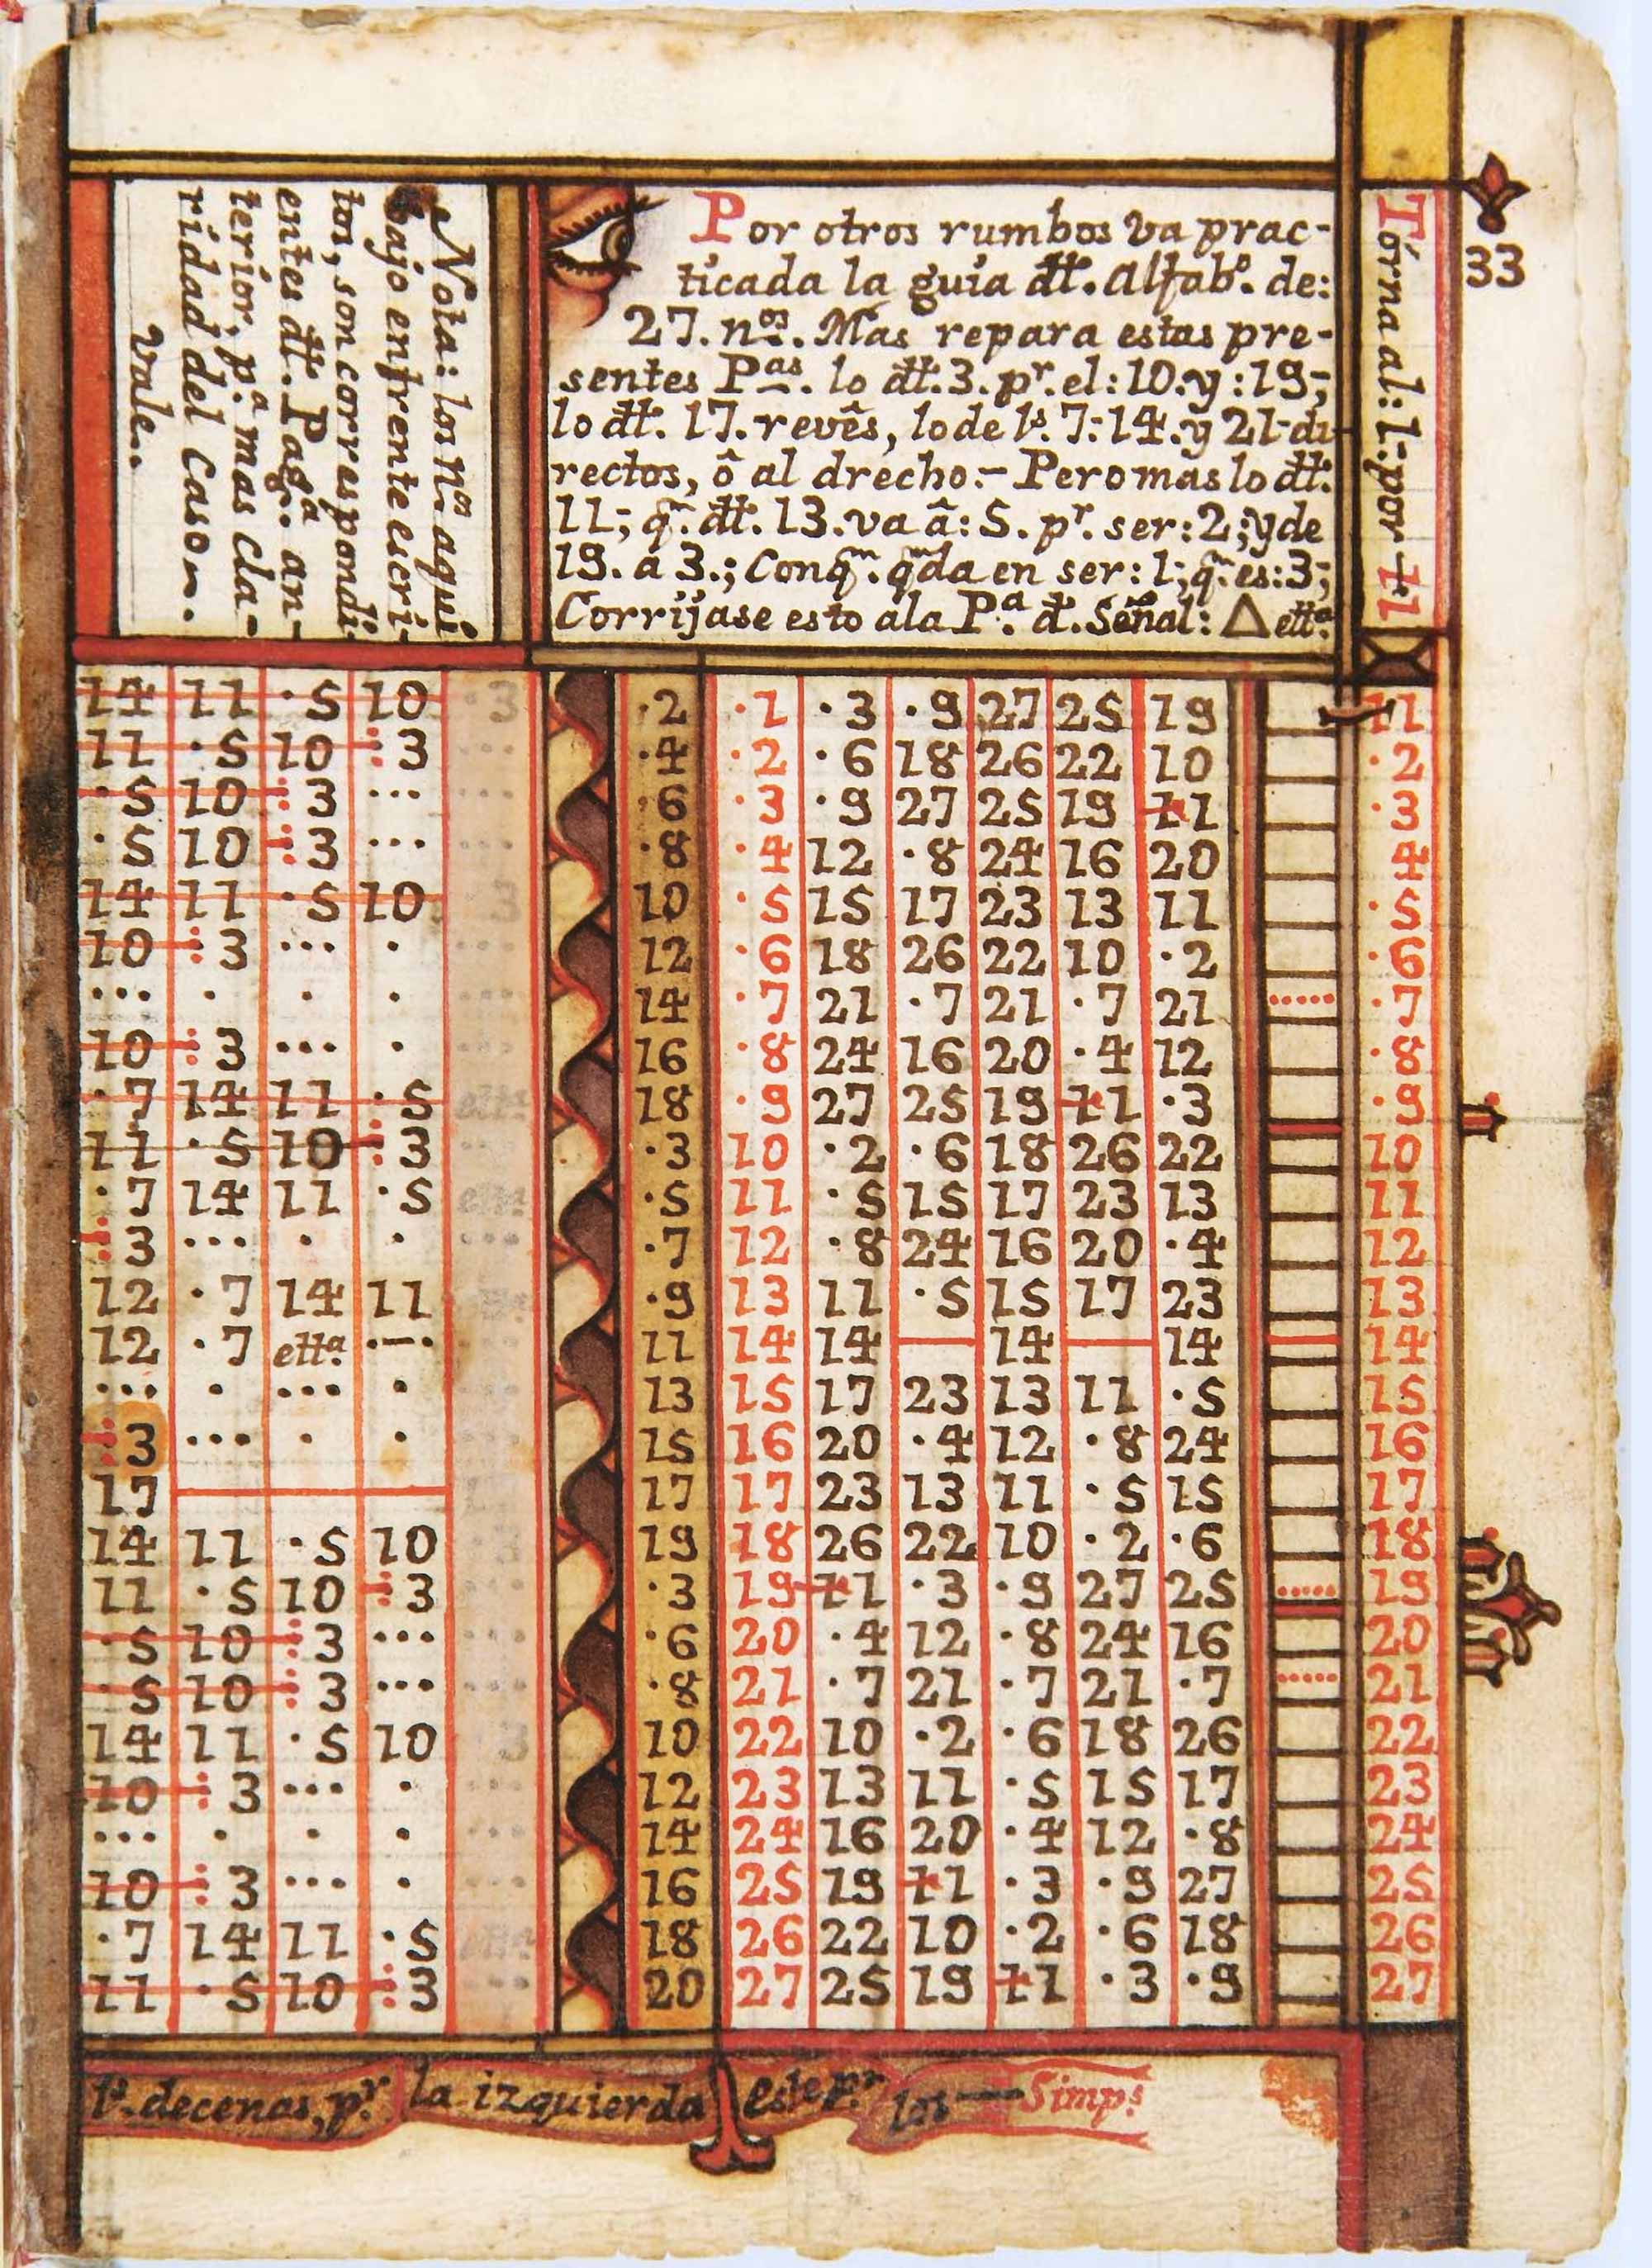 Nota: los nos. aqui
bajo enfrente escri-
tos, son correspondi-
entes dtt. Paga. an-
terior, pa. mas cla-
ridad del Caso~.
Vale..
Por otros rumbos va prac-
ticada la guia dtt. Alfabo. de:
27. nos. Mas repara estas pre-
sentes Pas. lo dtt. 3. pr. el: 10. y: 19;
lo dtt. 17. revês, lo de ls. 7: 14. y 21 di
rectos, ô al drecho:- Pero mas lo dtt.
11; qn. dtt. 13. va â: 5. pr. ser: 2; y de
19. a 3.; Conqm. qmda en ser: 1; qn. es: 3;
Corrijase esto ala Pa. d. Señal: Δ etta.
Tórna al: 1: por 1
33
14 11 ·5 10 ·3
11 ·5 10 :3 ...
·5 10 :3 ... ...
·5 10 :3 ... ...
14 11 ·5 10 3
10 :3 ... · ...
... · · · ...
10 :3 ... · ...
·7 14 11 ·5 etta
11 ·5 10 :3 ...
·7 14 11 ·5 etta
:3 ... · · ...
12 ·7 14 11
12 ·7 etta. ·—·
... · ... · ...
:3 ... · ·
17
14 11 ·5 10
11 ·5 10 :3 ...
·5 10 :3 ... ...
·5 10 :3 ... ...
14 11 ·5 10 3
10 :3 ... · ...
... · · · ...
10 :3 ... · ...
·7 14 11 ·5
11 ·5 10 :3 ...
·2 ·1 ·3 ·9 27 25 19 1
·4 ·2 ·6 18 26 22 10 ·2
·6 ·3 ·9 27 25 19 1 ·3
·8 ·4 12 ·8 24 16 20 4
10 ·5 15 17 23 13 11 ·5
12 ·6 18 26 22 10 ·2 ·6
14 ·7 21 ·7 21 ·7 21 ...... ·7
16 ·8 24 16 20 ·4 12 ·8
18 ·9 27 25 19 1 ·3 ·9
·3 10 ·2 ·6 18 26 22 10
·5 11 ·5 15 17 23 13 11
·7 12 ·8 24 16 20 ·4 12
·9 13 11 ·5 15 17 23 13
11 14 14 — 14 — 14 14
13 15 17 23 13 11 ·5 15
15 16 20 ·4 12 ·8 24 16
17 17 23 13 11 ·5 15 17
19 18 26 22 10 ·2 ·6 18
·3 19 1 ·3 ·9 27 25 ..... 19
·6 20 ·4 12 ·8 24 16 20
·8 21 ·7 21 ·7 21 ·7 ..... 21
10 22 10 ·2 ·6 18 26 22
12 23 13 11 ·5 15 17 23
14 24 16 20 ·4 12 ·8 24
16 25 19 1 ·3 ·9 27 25
18 26 22 10 ·2 ·6 18 26
20 27 25 19 1 ·3 ·9 27
ls. decenas, pr. la izquierda este pr. los — Simps.